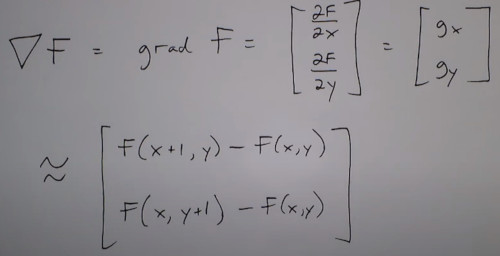 ∇F = grad F = [∂F/∂x ∂F/∂y] = [gx gy]
≈ [F(x+1, y) − F(x,y)
F(x, y+1) − F(x,y)]